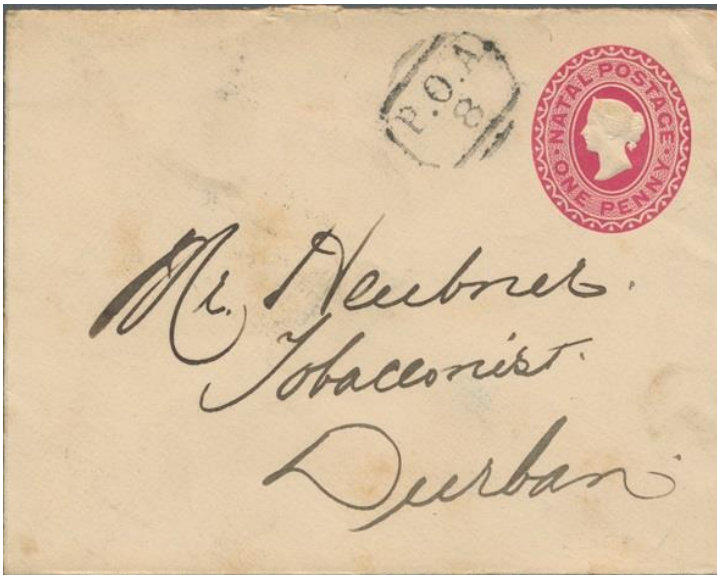 P.O.A.
8
NATAL POSTAGE
ONE PENNY
Mr. Heubner.
Tobacconist.
Durban